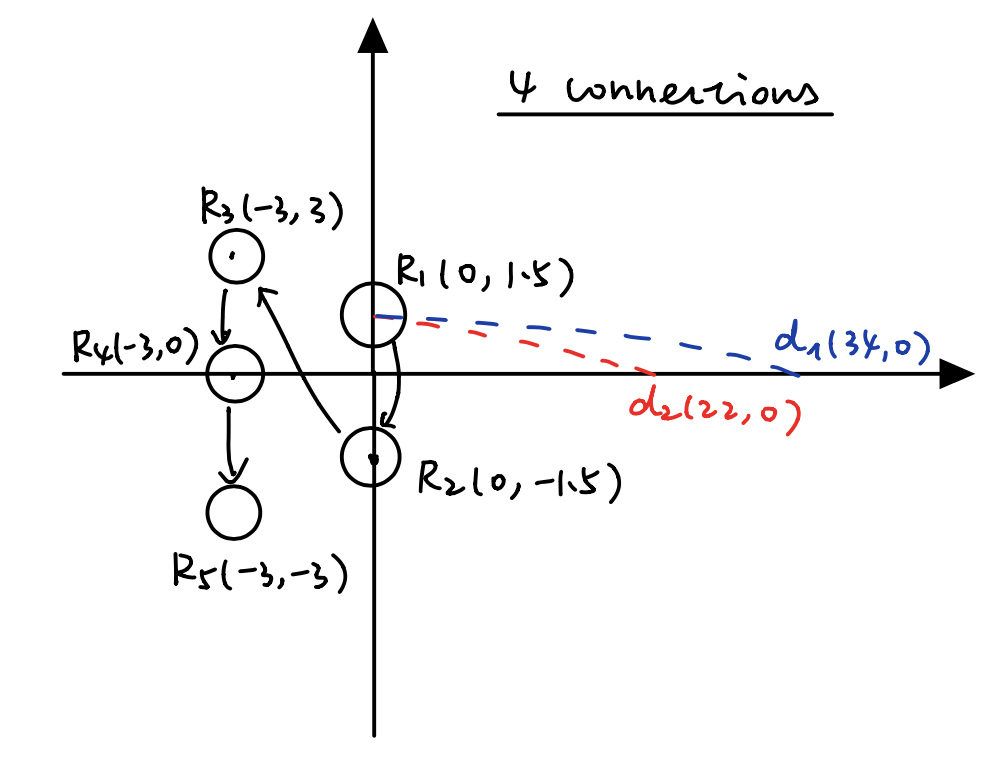 4 connections
R3(-3, 3)
R1(0, 1.5)
R4(-3,0)
d1(34,0)
d2(22,0)
R2(0, -1.5)
R5(-3,-3)